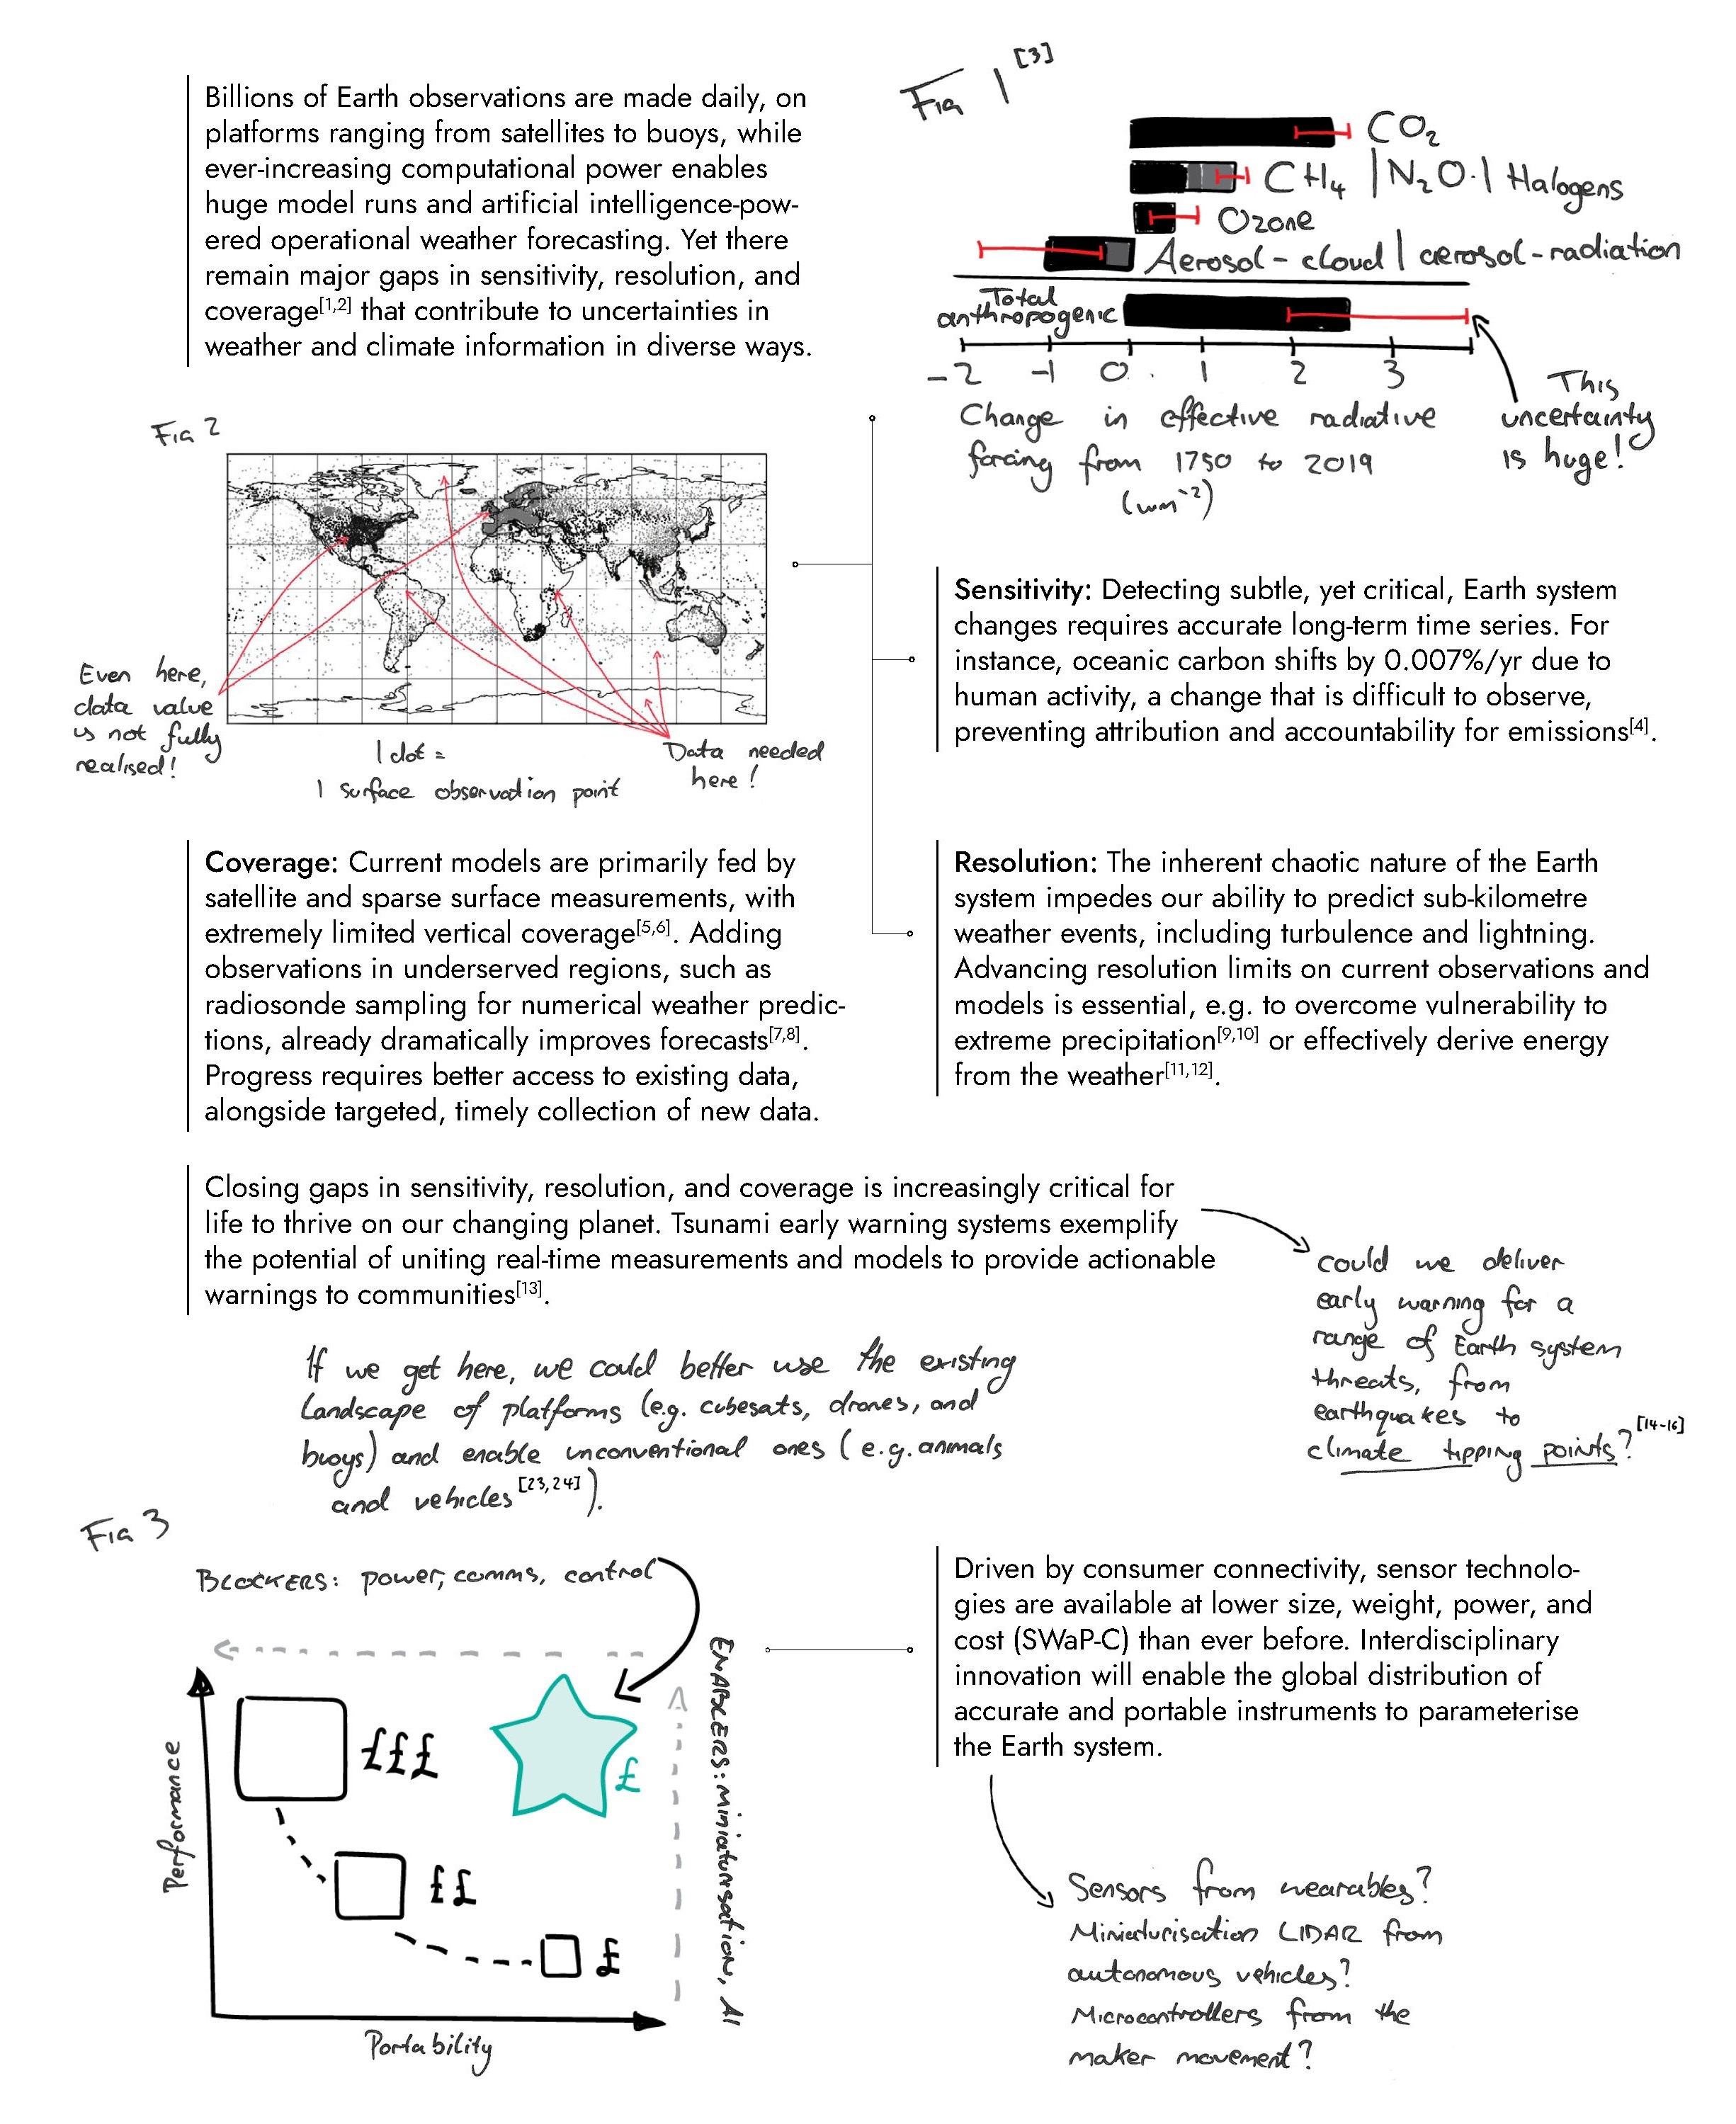 Billions of Earth observations are made daily, on
platforms ranging from satellites to buoys, while
ever-increasing computational power enables
huge model runs and artificial intelligence-pow-
ered operational weather forecasting. Yet there
remain major gaps in sensitivity, resolution, and
coverage[1,2] that contribute to uncertainties in
weather and climate information in diverse ways.
Fig 1 [3]
CO₂
CH₄ | N₂O. | Halogens
Ozone
Aerosol - cloud | aerosol - radiation
Total
anthropogenic
-2 -1 0 1 2 3
Change in effective radiative
forcing from 1750 to 2019
(wm⁻²)
This
uncertainty
is huge!
Fig 2
Even here,
data value
is not fully
realised!
1 dot =
1 surface observation point
Data needed
here!
Sensitivity: Detecting subtle, yet critical, Earth system
changes requires accurate long-term time series. For
instance, oceanic carbon shifts by 0.007%/yr due to
human activity, a change that is difficult to observe,
preventing attribution and accountability for emissions[4].
Coverage: Current models are primarily fed by
satellite and sparse surface measurements, with
extremely limited vertical coverage[5,6]. Adding
observations in underserved regions, such as
radiosonde sampling for numerical weather predic-
tions, already dramatically improves forecasts[7,8].
Progress requires better access to existing data,
alongside targeted, timely collection of new data.
Resolution: The inherent chaotic nature of the Earth
system impedes our ability to predict sub-kilometre
weather events, including turbulence and lightning.
Advancing resolution limits on current observations and
models is essential, e.g. to overcome vulnerability to
extreme precipitation[9,10] or effectively derive energy
from the weather[11,12].
Closing gaps in sensitivity, resolution, and coverage is increasingly critical for
life to thrive on our changing planet. Tsunami early warning systems exemplify
the potential of uniting real-time measurements and models to provide actionable
warnings to communities[13].
could we deliver
early warning for a
range of Earth system
threats, from
earthquakes to
climate tipping points?[14-16]
If we get here, we could better use the existing
landscape of platforms (e.g. cubesats, drones, and
buoys) and enable unconventional ones (e.g. animals
and vehicles[23,24]).
Fig 3
BLOCKERS: power, comms, control
ENABLERS: Miniaturisation, AI
Performance
£££
££
£
£
Portability
Driven by consumer connectivity, sensor technolo-
gies are available at lower size, weight, power, and
cost (SWaP-C) than ever before. Interdisciplinary
innovation will enable the global distribution of
accurate and portable instruments to parameterise
the Earth system.
Sensors from wearables?
Miniaturisation LIDAR from
autonomous vehicles?
Microcontrollers from the
maker movement?